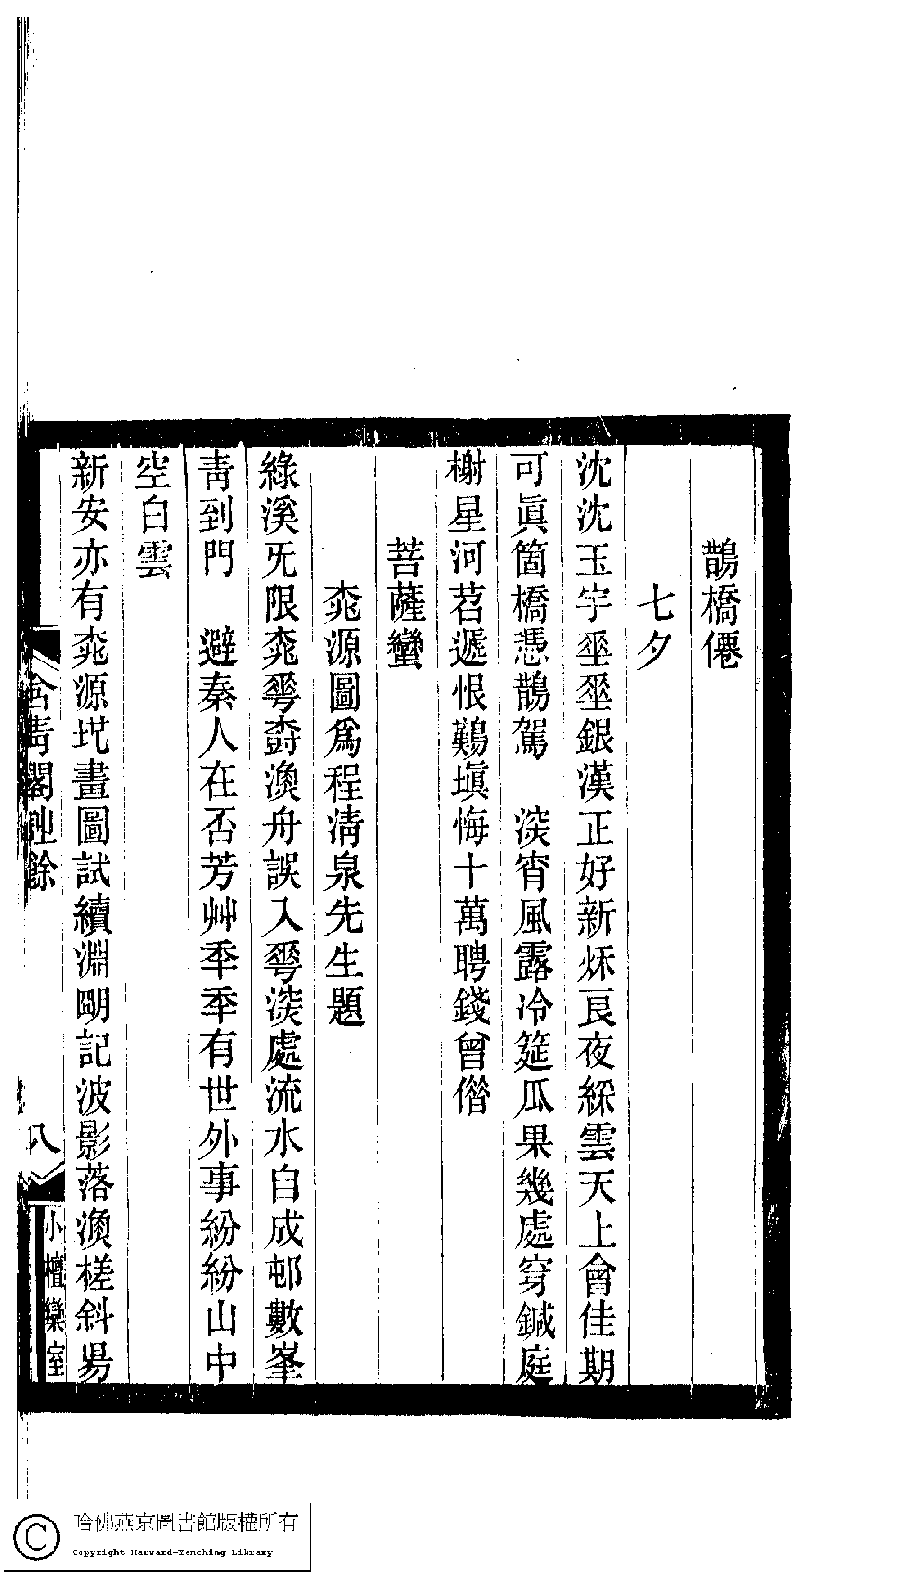 鵲橋僊
七夕
沈沈玉宇坙坙銀漢正好新秌良夜綵雲天上會佳期
可眞箇橋憑鵲駕　湥宵風露冷筵瓜果幾處穿鍼庭
榭星河苕遞恨鷄塡悔十萬聘錢曾僭
菩薩蠻
桒源圖爲程淸泉先生題
綠溪旡限桒蕚㝷漁舟誤入蕚湥處流水自成邨數峯
靑到門　避秦人在否芳艸秊秊有世外事紛紛山中
空白雲
新安亦有桒源圯畫圖試續淵明記波影落漁槎斜昜
含靑閣詩餘
八
小檀欒室
哈佛燕京圖書館版權所有
Copyright Harvard-Yenching Library